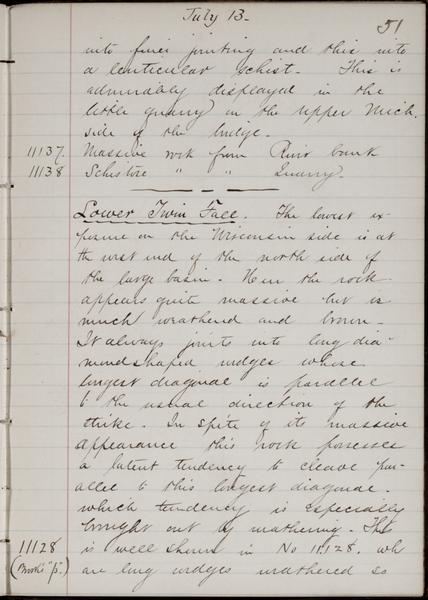 July 13-
51
into finer jointing and this into
a lenticular schist. This is
admirably displayed in the
little quarry on the upper Mich.
side of the bridge.
11137. Massive rock from River bank
11138 Schistose " " Quarry.
Lower Twin Fall. The lowest ex-
posure on the Wisconsin side is at
the west end of the north side of
the large basin. Here the rock
appears quite massive but is
much weathered and brown.
It always joints into long dia-
mond shaped wedges whose
longest diagonal is parallel
to the usual direction of the
strike. In spite of its massive
appearance this rock possesses
a latent tendency to cleave par-
allel to this longest diagonal.
which tendency is especially
brought out by weathering. This
11128 is well shown in No 11128. wh
(Brooks "β".) are long wedges weathered so